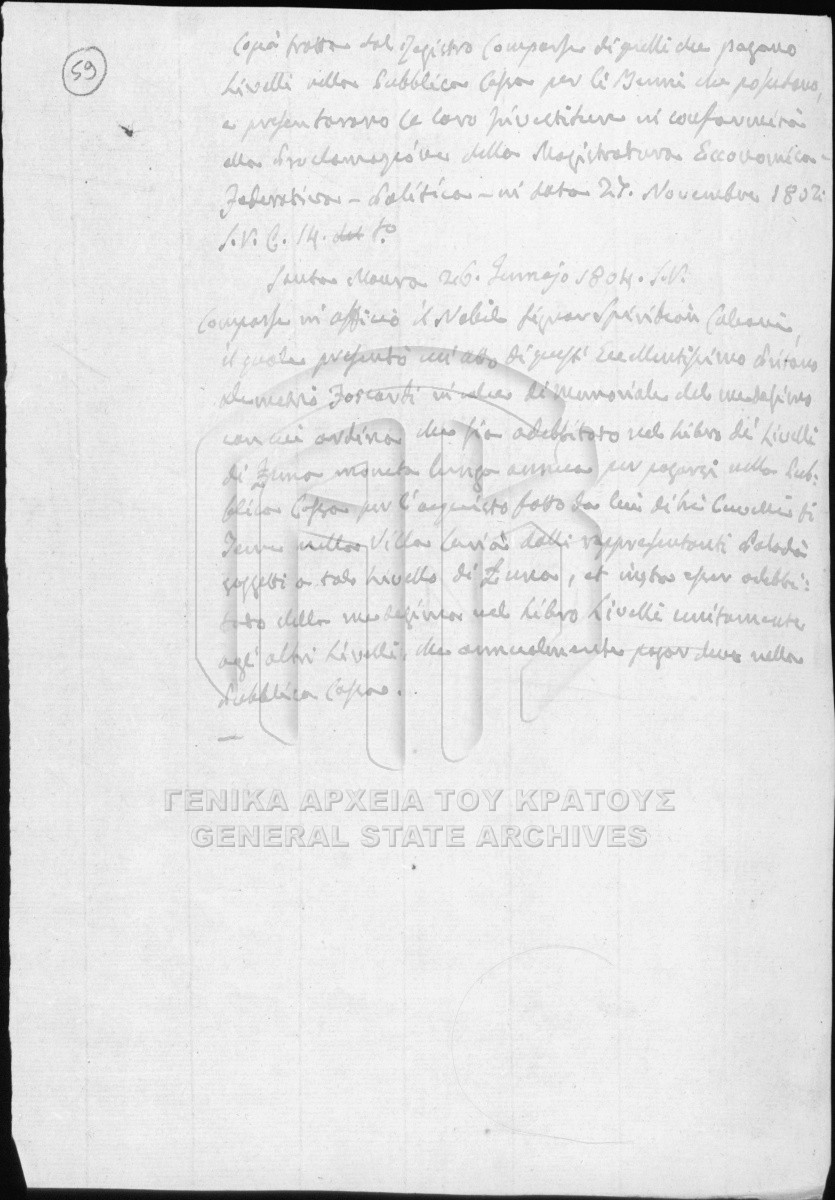 59
Copia tratta dal Registro Comparse di quelli che pagano
Livelli nella Pubblica Cassa per li Benni che possedono,
e presentarono le loro Investiture in conformità
alla Proclamazione della Magistratura Economica-
Federativa - Politica - in data 27. Novembre 1802
S.V. C. 14.
Santa Maura 26. Gennajo 1804. S.V.
Comparse in officio il Nobile Signor Spiridion
il quale presentò un atto di questi Eccellentissimo Pritano
Foscardi in calce di Memoriale del medesimo
con cui ordina che sia adebbitato nel Libro de' Livelli
di moneta lunga annua per pagarsi nella Pub:
blica Cassa per l'acquisto fatto da lui di
Terre nella Villa dalli rappresentanti
soggetti a tal Livello di, et resta esser adebbi:
tato della medesima nel Libro Livelli unitamente
agl'altri Livelli, che annualmente pagar deve nella
Pubblica Cassa.
ΓΕΝΙΚΑ ΑΡΧΕΙΑ ΤΟΥ ΚΡΑΤΟΥΣ
GENERAL STATE ARCHIVES